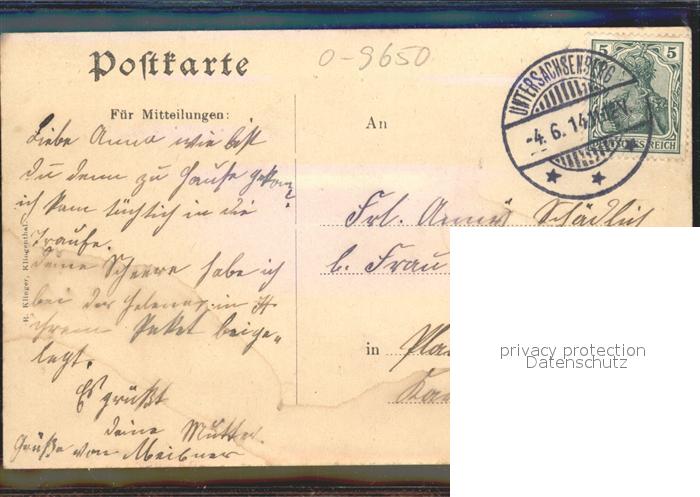 Postkarte
0-9650
UNTERSACHSENBERG
-4.6.14.11-12V
5 5
DEUTSCHES REICH
Für Mitteilungen:
An
Liebe Anna wie bist
du denn zu Hause gekom?
ich kam tüchtig in die
Traufe.
Deine Scheere habe ich
bei der Helene in
ihrem Paket beige-
legt.
Es grüßt
deine Mutter.
Grüße von Meibner
Frl. Anna Schädlich
b. Frau
in Pla
R. Klinger, Klingenthal
privacy protection
Datenschutz